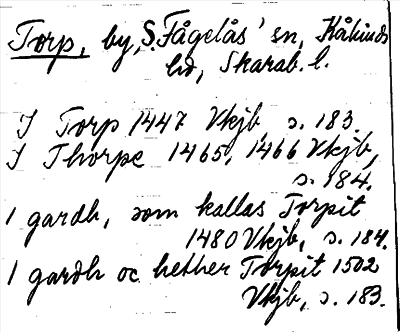 Torp, by, S. Fågelås' sn, Kåkinds
hd, Skarab. l.
I Torp 1447 Vkjb s. 183.
I Thorpe 1465, 1466 Vkjb,
s. 184.
1 gardh, som kallas Torpit
1480 Vkjb, s. 184.
1 gardh oc hether Torpit 1502
Vkjb, s. 183.